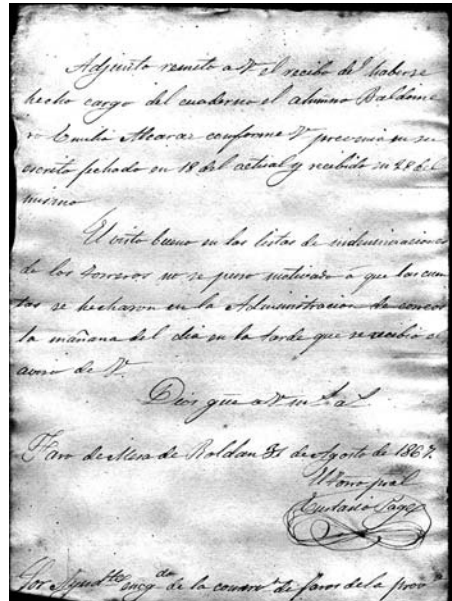 Adjunto remito a V. el recibo del haberse
hecho cargo del cuaderno el alumno Baldome
ro Emilio Alcaraz conforme V. previno en su
escrito fechado en 18 del actual y recibido en 28 del
mismo
El visto bueno en las listas de indemnizaciones
de los torreros no se puso motivado a que las cuen
tas se hecharon en la Administracion de correos
la mañana del dia en la tarde que se recibio el
aviso de V.
Dios gue a V. m s. a s.
Faro de Mesa de Roldan 31 de Agosto de 1867.
El Torro pral
Eustasio Pages
Sor Ayudte encgdo de la conservn de faros de la provª